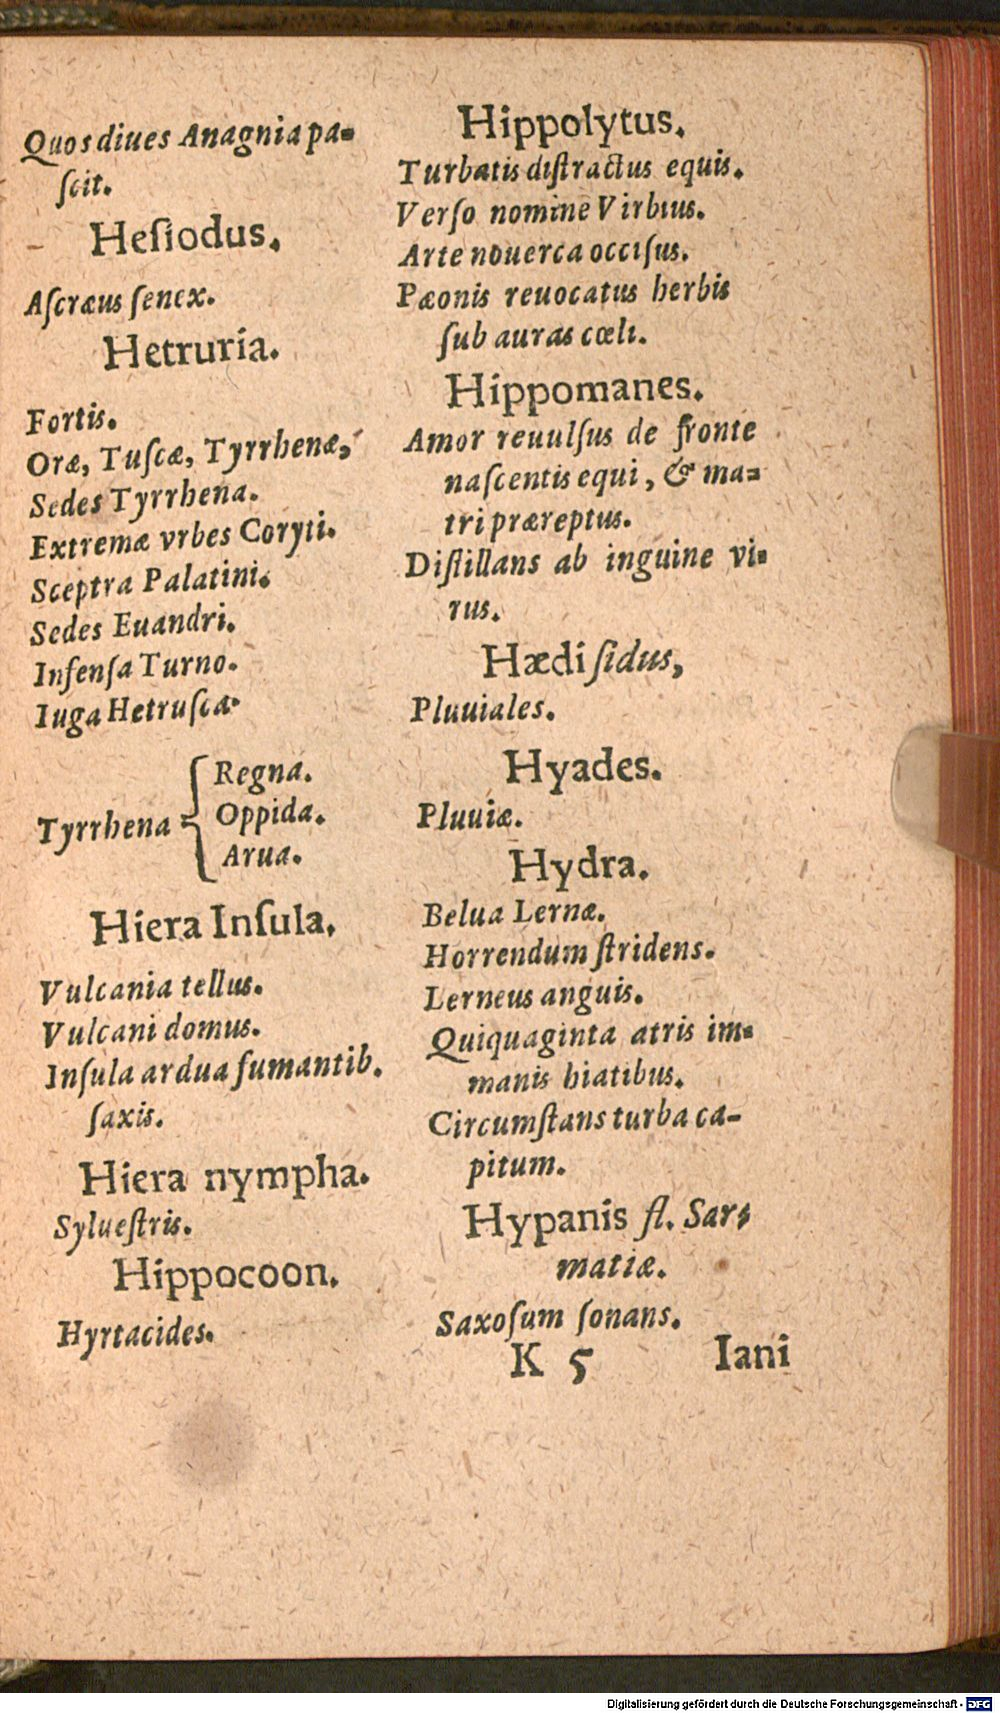 Quos diues Anagnia pa-
ſcit.
Heſiodus.
Aſcræus ſenex.
Hetruria.
Fortis.
Oræ, Tuſcæ, Tyrrhenæ,
Sedes Tyrrhena.
Extremæ vrbes Coryti.
Sceptra Palatini.
Sedes Euandri.
Infenſa Turno.
Iuga Hetruſca.
Tyrrhena { Regna.
Oppida.
Arua.
Hiera Inſula.
Vulcania tellus.
Vulcani domus.
Inſula ardua fumantib.
ſaxis.
Hiera nympha.
Sylueſtris.
Hippocoon.
Hyrtacides.
Hippolytus.
Turbatis diſtractus equis.
Verſo nomine Virbius.
Arte nouerca occiſus.
Pæonis reuocatus herbis
ſub auras cœli.
Hippomanes.
Amor reuulſus de fronte
naſcentis equi, & ma-
tri præreptus.
Diſtillans ab inguine vi-
rus.
Hædi ſidus,
Pluuiales.
Hyades.
Pluuiæ.
Hydra.
Belua Lernæ.
Horrendum ſtridens.
Lerneus anguis.
Quiquaginta atris im-
manis hiatibus.
Circumſtans turba ca-
pitum.
Hypanis fl. Sar-
matiæ.
Saxoſum ſonans.
K 5 Iani
Digitalisierung gefördert durch die Deutsche Forschungsgemeinschaft - DFG